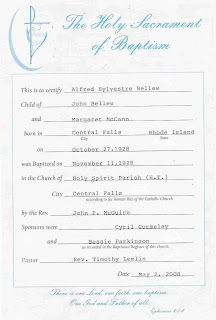 The Holy Sacrament
of Baptism
This is to certify Alfred Sylvestre Bellew
Child of John Bellew
and Margaret McCann
born in Central Falls Rhode Island
City State
on October 27,1928
was Baptized on November 11,1928
in the Church of Holy Spirit Parish (H.T.)
City Central Falls
according to the Roman Rite of the Catholic Church
by the Rev. John F. McGuire
Sponsors were Cyril Gormeley
and Bessie Parkinson
as recorded in the Baptismal Register of this church.
Pastor Rev. Timothy Lemlin
Date May 2, 2008
There is one Lord, one faith, one baptism,
One God and Father of all.
Ephesians 4:5-6